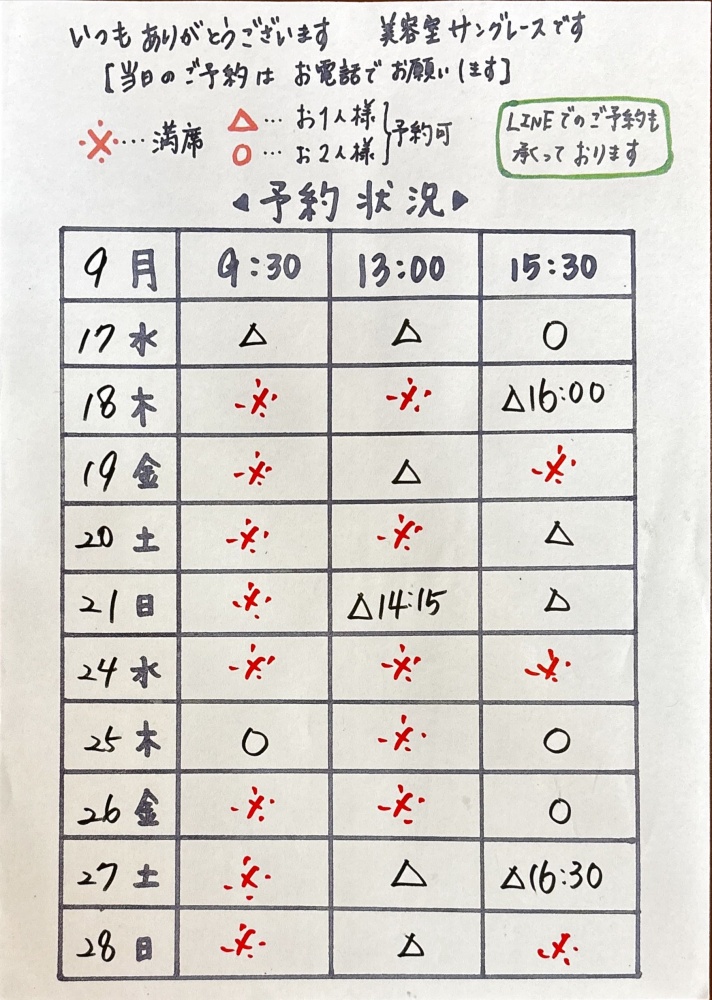 いつもありがとうございます　美容室サングレースです
[当日のご予約は お電話でお願いします]
※…満席
△…お1人様
○…お2人様
予約可
LINEでのご予約も
承っております
◀予約状況▶
9月 9:30 13:00 15:30
17水 △ △ ○
18木 ※ ※ △16:00
19金 ※ △ ※
20土 ※ ※ △
21日 ※ △14:15 △
24水 ※ ※ ※
25木 ○ ※ ○
26金 ※ ※ ○
27土 ※ △ △16:30
28日 ※ △ ※